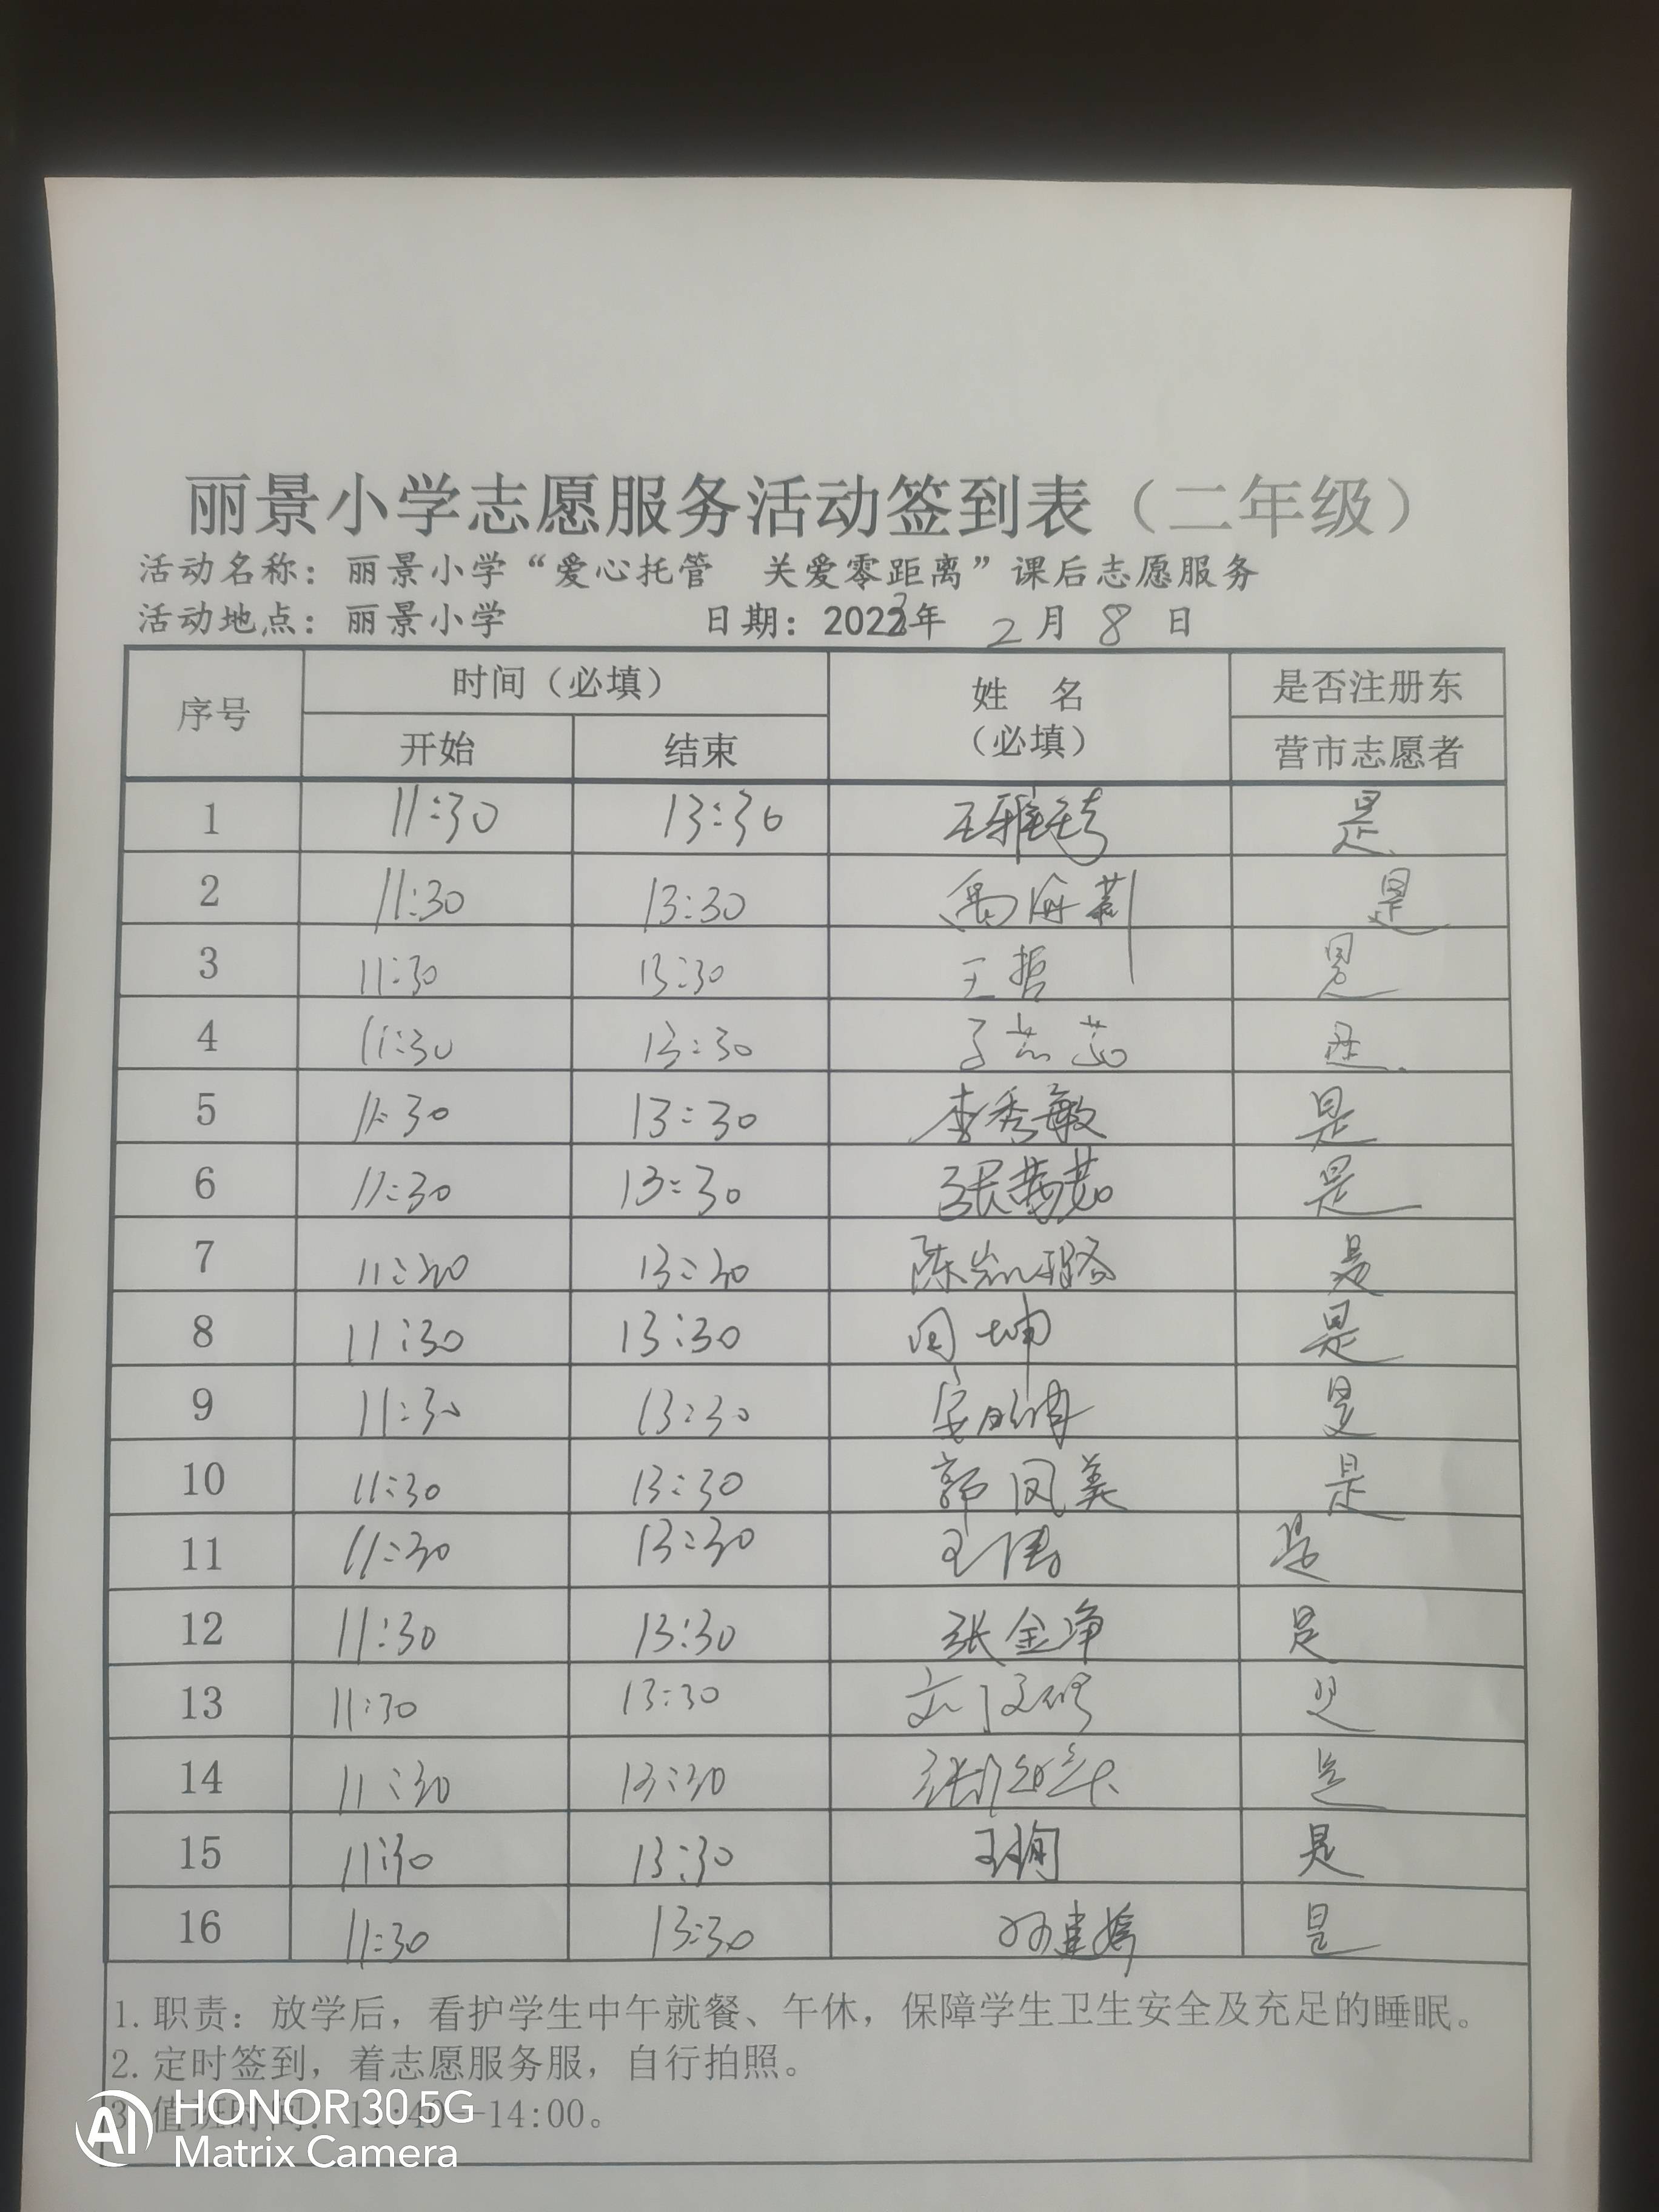 丽景小学志愿服务活动签到表（二年级）
活动名称：丽景小学“爱心托管　关爱零距离”课后志愿服务
活动地点：丽景小学　日期：2023年 2月 8 日
序号 时间（必填） 姓 名（必填） 是否注册东营市志愿者
开始 结束
1 11:30 13:30 王雅琦 是
2 11:30 13:30 禹海莉 是
3 11:30 13:30 王哲 是
4 11:30 13:30 是
5 11:30 13:30 李秀敏 是
6 11:30 13:30 张茜茹 是
7 11:30 13:30 陈岩璐 是
8 11:30 13:30 周坤 是
9 11:30 13:30 是
10 11:30 13:30 郭凤美 是
11 11:30 13:30 王倩 是
12 11:30 13:30 张金净 是
13 11:30 13:30 是
14 11:30 13:30 是
15 11:30 13:30 王珣 是
16 11:30 13:30 孙建嫦 是
1.职责：放学后，看护学生中午就餐、午休，保障学生卫生安全及充足的睡眠。
2.定时签到，着志愿服务服，自行拍照。
3.值班时间：11:40—14:00。
AI HONOR 30 5G
Matrix Camera